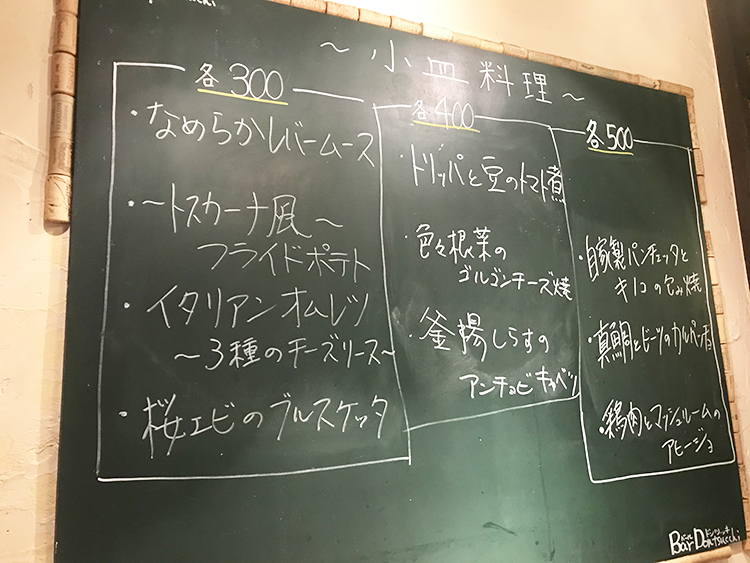 ~小皿料理~
各300
・なめらかレバームース
・~トスカーナ風~
フライドポテト
・イタリアンオムレツ
~3種のチーズソース~
・桜エビのブルスケッタ
各400
・トリッパと豆のトマト煮
・色々根菜の
ゴルゴンチーズ焼
・釜揚しらすの
アンチョビキャベツ
各500
・自家製パンチェッタと
キノコの包み焼
・真鯛とビーツのカルパッチョ
・鶏肉とマッシュルームの
アヒージョ
Bar Dontsucchi